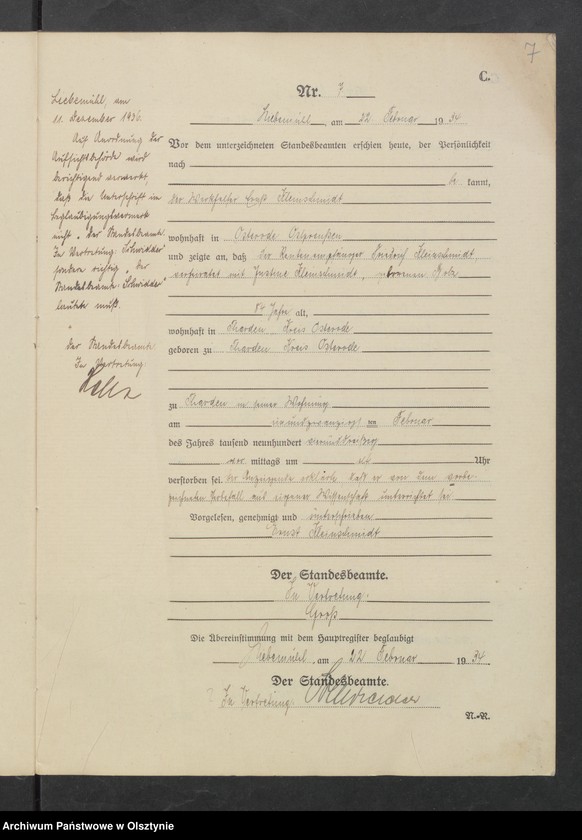 7
C.
Liebemühl, am
11. Dezember 1936.
Auf Anordnung der
Aufsichtsbehörde wird
berichtigend vermerkt,
daß die Unterschrift im
Beglaubigungsvermerk
nicht „Der Standesbeamte
In Vertretung: Schwidder"
sondern richtig „Der
Standesbeamte: Schwidder"
lauten muß.
Der Standesbeamte
In Vertretung
Nr. 7
Liebemühl, am 22 Februar 1934
Vor dem unterzeichneten Standesbeamten erschien heute, der Persönlichkeit
nach
be kannt,
der Werkhelfer Ernst Kleinschmidt
wohnhaft in Osterode Ostpreußen
und zeigte an, daß der Rentenempfänger Friedrich Kleinschmidt,
verheiratet mit Justine Kleinschmidt, geborenen
84 Jahre alt,
wohnhaft in Tharden, Kreis Osterode
geboren zu Tharden Kreis Osterode
zu Tharden in seiner Wohnung
am einundzwanzigsten Februar
des Jahres tausend neunhundert vierunddreißig
vor mittags um Uhr
verstorben sei. Der Anzeigende erklärte, daß er von dem vorbe-
zeichneten Sterbefall aus eigener Wissenschaft unterrichtet sei
Vorgelesen, genehmigt und unterschrieben
Ernst Kleinschmidt
Der Standesbeamte.
In Vertretung:
Groß
Die Übereinstimmung mit dem Hauptregister beglaubigt
Liebemühl, am 22 Februar 1934
Der Standesbeamte.
In Vertretung: Schwidder
N.-R.
Archiwum Państwowe w Olsztynie